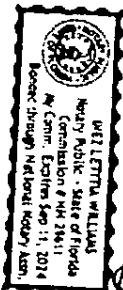 WILLIAMS
Notary Public - State of Florida
Commission # HH
My Comm. Expires Sep 11, 2024
Bonded through National Notary Assn.